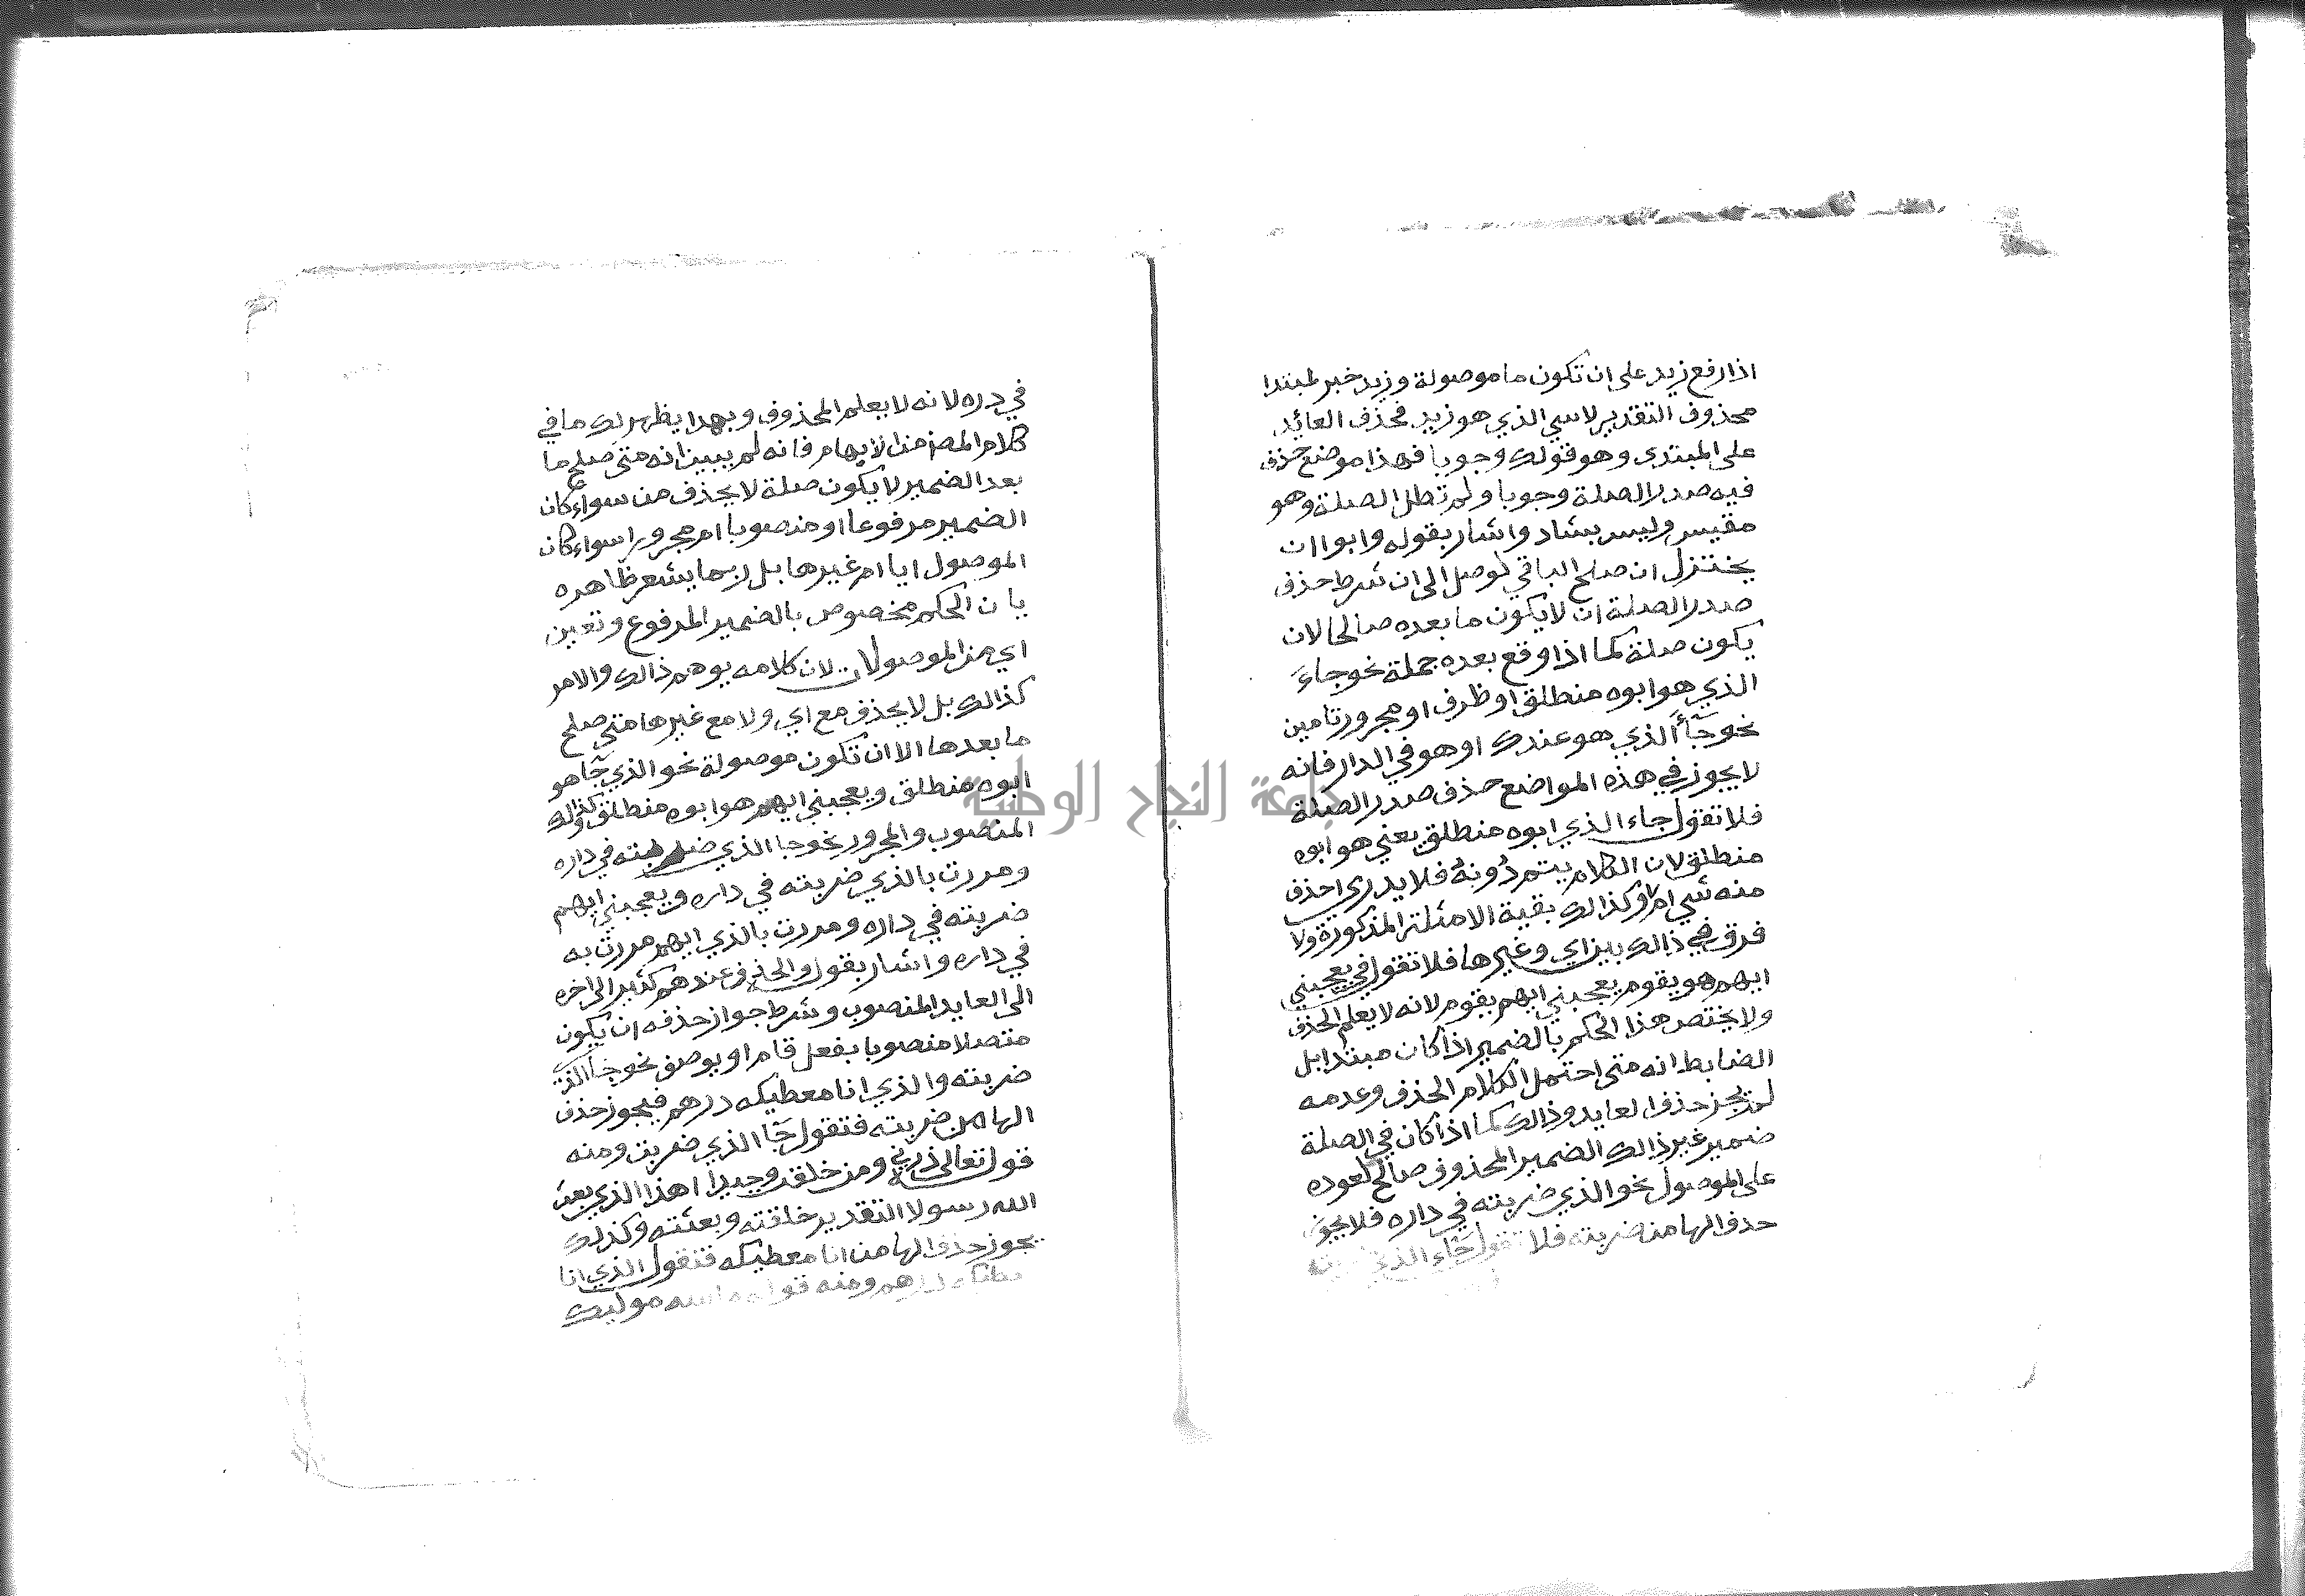 اذا رفع زيد على ان تكون ما موصولة وزيد خبر لمبتدا
محذوف التقدير لاسي الذي هو زيد فحذف العائد
على المبتدى وهو قولك وجوبا فهذا موضع حذف
فيه صدر الصلة وجوبا ولم تطل الصلة وهو
مقيس وليس بشاد واشار بقوله وابوا ان
يختزل ان صلح الباقي لوصل الى ان شرط حذف
صدر الصلة ان لا يكون ما بعده صالحا لان
يكون صلة كما اذا وقع بعده جملة نحو جاء
الذي هو ابوه منطلق او ظرف او مجرور تامين
نحو جاأ الذي هو عندك او هو في الدار فانه
لا يجوز في هذه المواضع حذف صدر الصلة
فلا تقول جاء الذي ابوه منطلق يعني هو ابوه
منطلق لان الكلام يتم دونه فلا يدرى احذف
منه شي ام لا وكذالك بقية الامثلة المذكورة ولا
فرق في ذالك بين اي وغيرها فلا تقول في يعجبني
ايهم هو يقوم يعجبني ايهم يقوم لانه لا يعلم الحذف
ولا يختص هذا الحكم بالضمير اذا كان مبتدا بل
الضابط انه متى احتمل الكلام الحذف وعدمه
لم يجز حذف العايد وذالك كما اذا كان في الصلة
ضمير غير ذالك الضمير المحذوف صالح لعوده
على الموصول نحو الذي ضربته في داره فلا يجوز
حذف الها من ضربته فلا تقول جاء الذي
في دره لانه لا يعلم المحذوف وبهدا يظهر لك ما في
كلام المصنف من الايهام فانه لم يبين انه متى صلح ما
بعد الضمير لا يكون صلة لا يحذف من سواء كان
الضمير مرفوعا او منصوبا ام مجرورا سواء كان
الموصول ايا ام غيرها بل ربما يشعر ظاهره
بان الحكم مخصوص بالضمير المرفوع وتعين
اي من الموصولات لان كلامه يوهم ذالك والامر
كذالك بل لا يحذف مع اي ولا مع غيرها متى صلح
ما بعدها الا ان تكون موصولة نحو الذي جا هو
ابوه منطلق ويعجبني ايهم هو ابوه منطلق وكذالك
المنصوب والمجرور نحو جا الذي ضربته في داره
ومررت بالذي ضربته في داره ويعجبني ايهم
ضربته في داره ومررت بالذي ايهم مررت به
في داره واشار بقوله والحذف عندهم كثير الى اخره
الى العايد المنصوب وشرط جواز حذفه ان يكون
متصلا منصوبا بفعل تام او بوصف نحو جا الذي
ضربته والذي انا معطيكه درهم فيجوز حذف
الها من ضربته فتقول جا الذي ضربت ومنه
قول تعالى ذرني ومن خلقت وحيدا اهذا الذي بعث
الله رسولا التقدير خلقته وبعثته وكذلك
يجوز حذف الها من انا معطيكه فتقول الذي انا
درهم ومنه قوله ما الله موليك
جامعة النجاح الوطنية